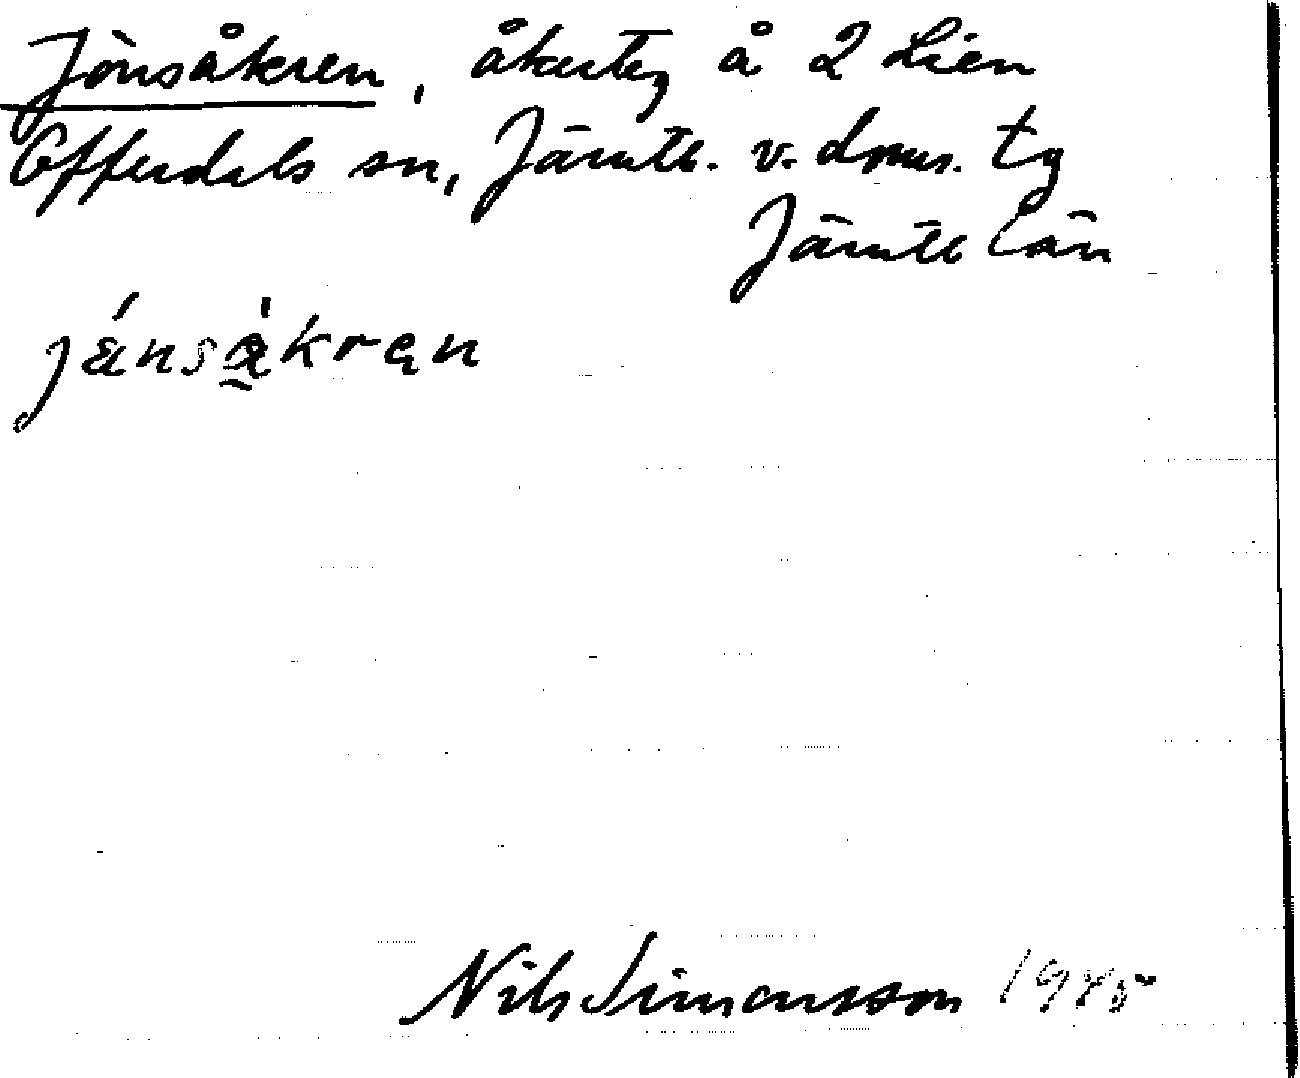 Jönsåkren, åkerteg å 2 Lien
Offerdals sn, Jämtl. v. doms. tg
Jämtl län
Nils Simonsson 1985